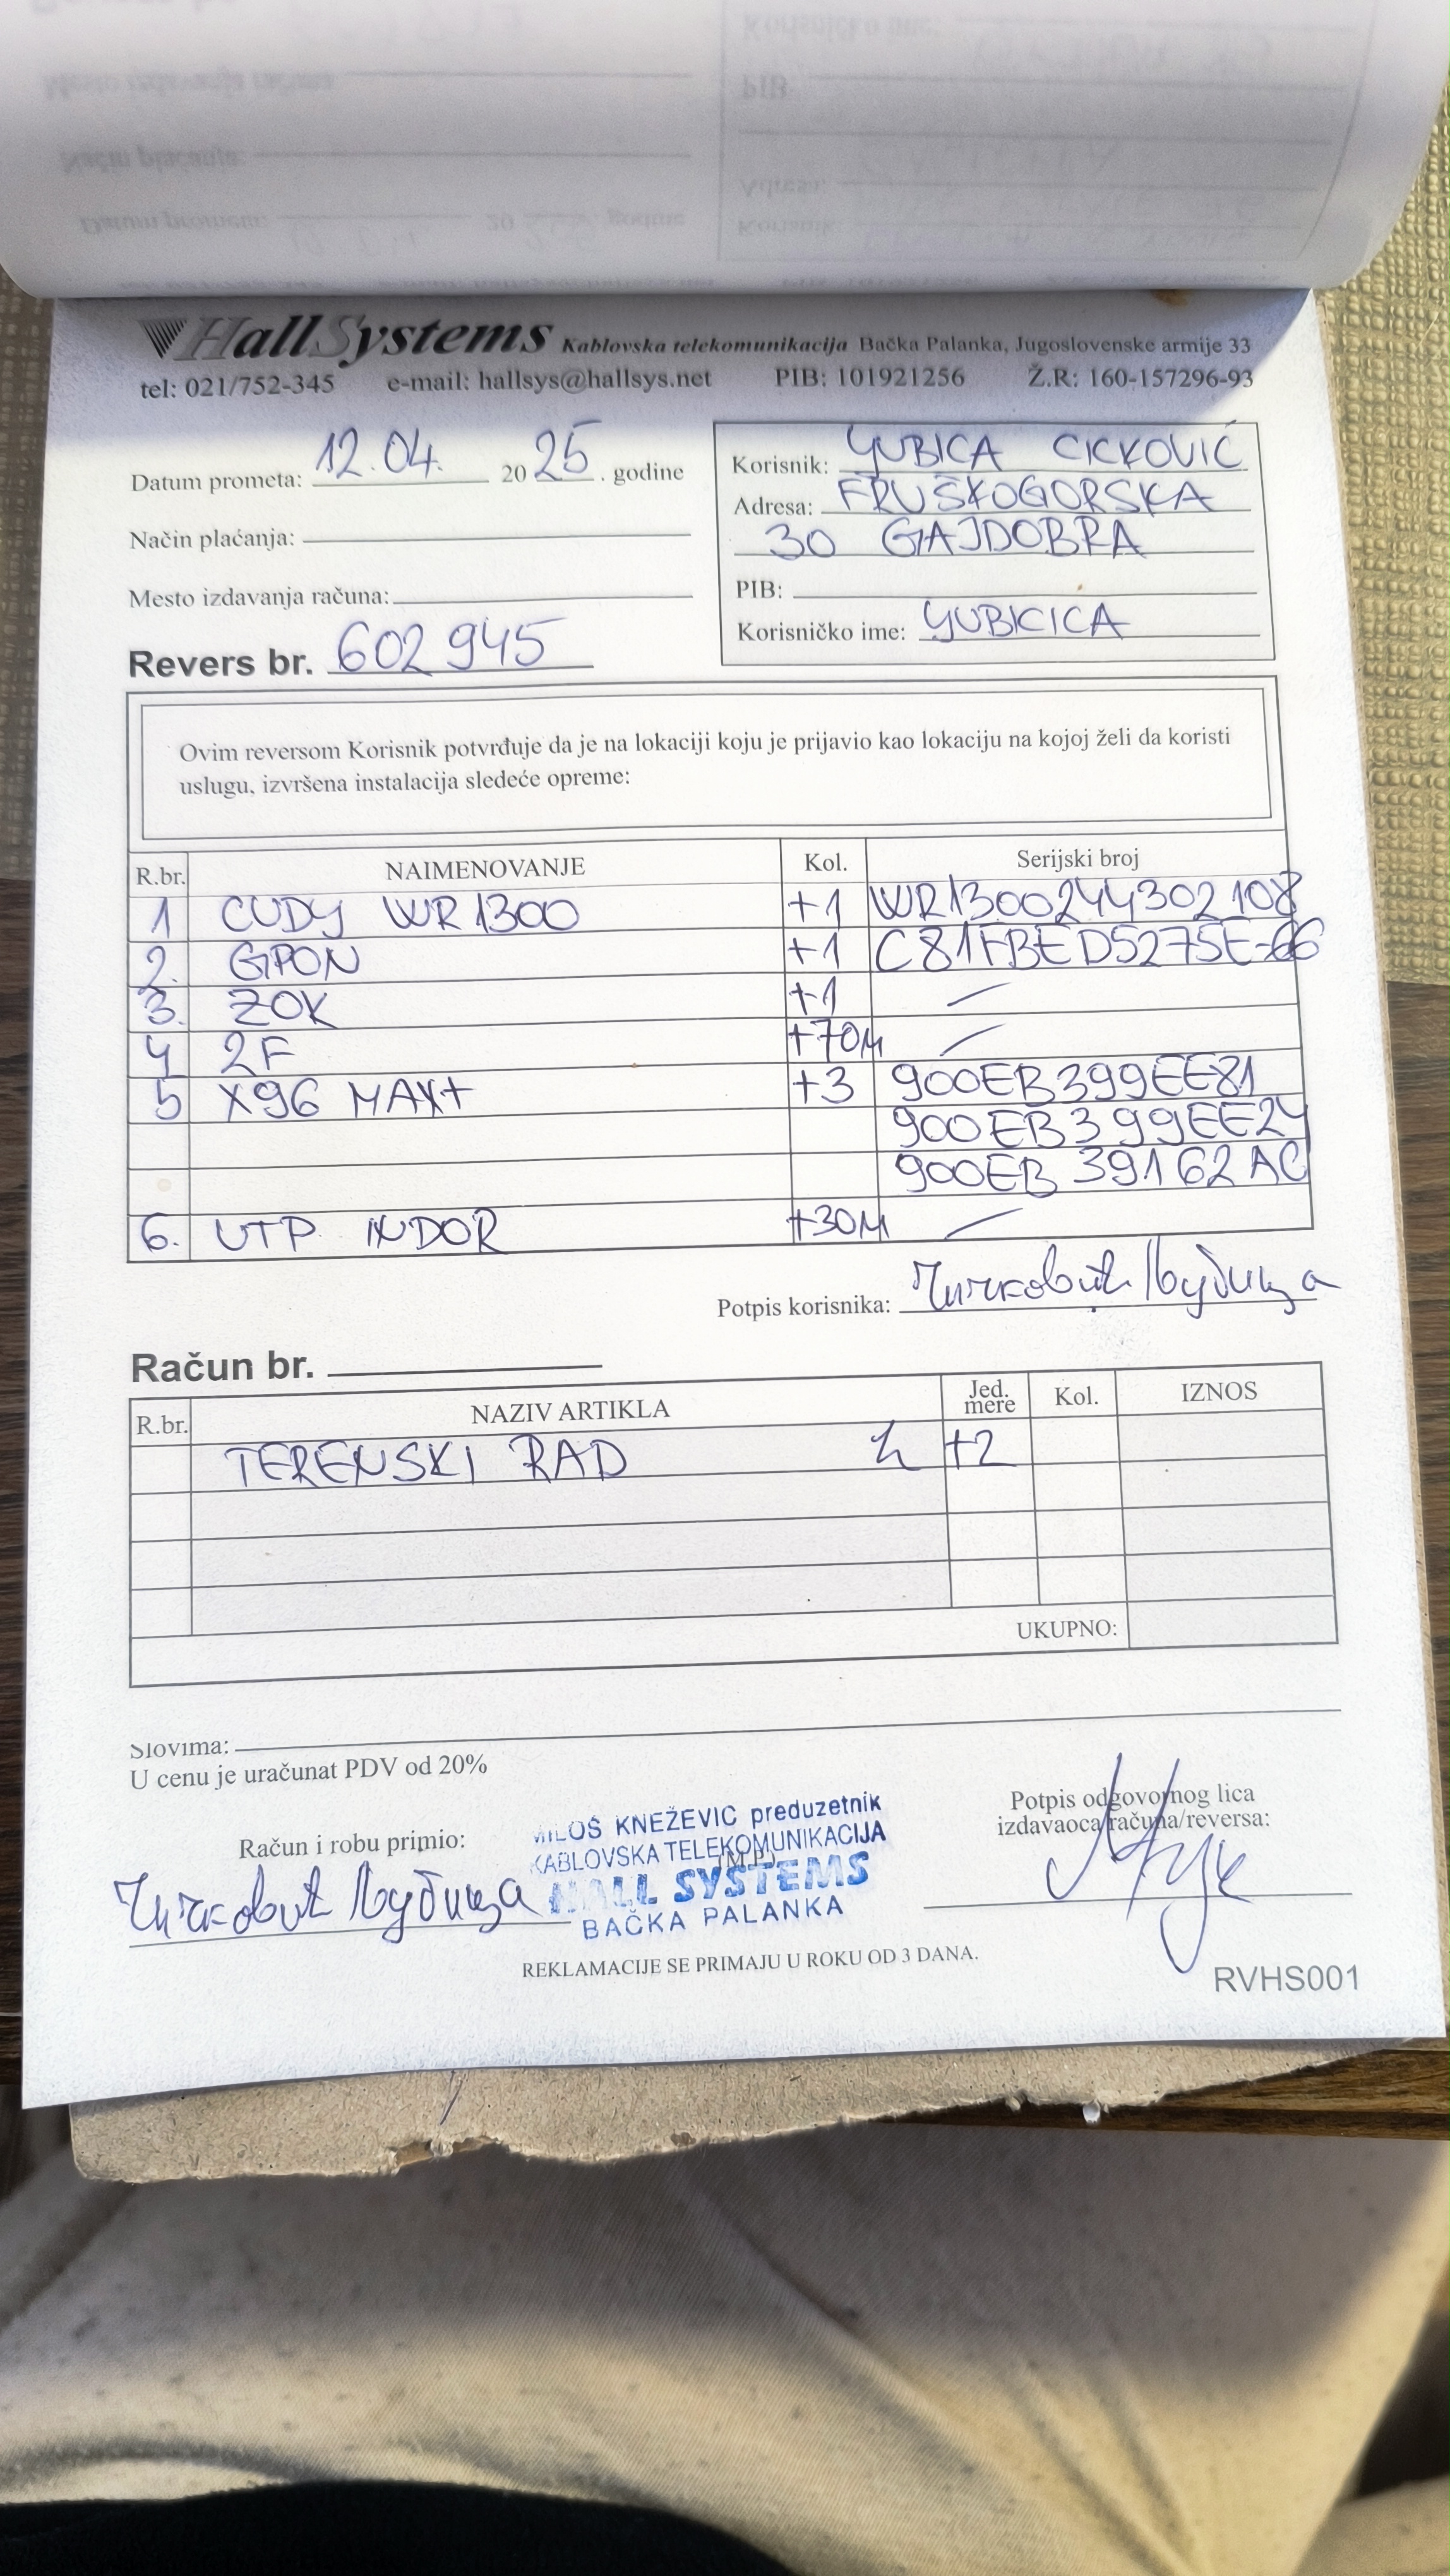 HallSystems Kablovska telekomunikacija Bačka Palanka, Jugoslovenske armije 33
tel: 021/752-345 e-mail: hallsys@hallsys.net PIB: 101921256 Ž.R: 160-157296-93
Datum prometa: 12.04. 2025. godine
Način plaćanja:
Mesto izdavanja računa:
Revers br. 602945
Korisnik: LJUBICA CICKOVIĆ
Adresa: FRUŠKOGORSKA
30 GAJDOBRA
PIB:
Korisničko ime: LJUBICICA
Ovim reversom Korisnik potvrđuje da je na lokaciji koju je prijavio kao lokaciju na kojoj želi da koristi
uslugu, izvršena instalacija sledeće opreme:
R.br. NAIMENOVANJE Kol. Serijski broj
1 CUDY WR1300 +1 WR1300244302108
2. GPON +1 C81FBED5275E-66
3. ZOK +1 /
4 2F +70M /
5 X96 MAX+ +3 900EB399EE81
900EB399EE24
900EB39162AC
6. UTP INDOR +30M /
Potpis korisnika:
Račun br.
R.br. NAZIV ARTIKLA Jed. mere Kol. IZNOS
TERENSKI RAD h +2
UKUPNO:
Slovima:
U cenu je uračunat PDV od 20%
Račun i robu primio:
MILOŠ KNEŽEVIĆ preduzetnik
KABLOVSKA TELEKOMUNIKACIJA
(M.P.)
HALL SYSTEMS
BAČKA PALANKA
Potpis odgovornog lica
izdavaoca računa/reversa:
REKLAMACIJE SE PRIMAJU U ROKU OD 3 DANA.
RVHS001